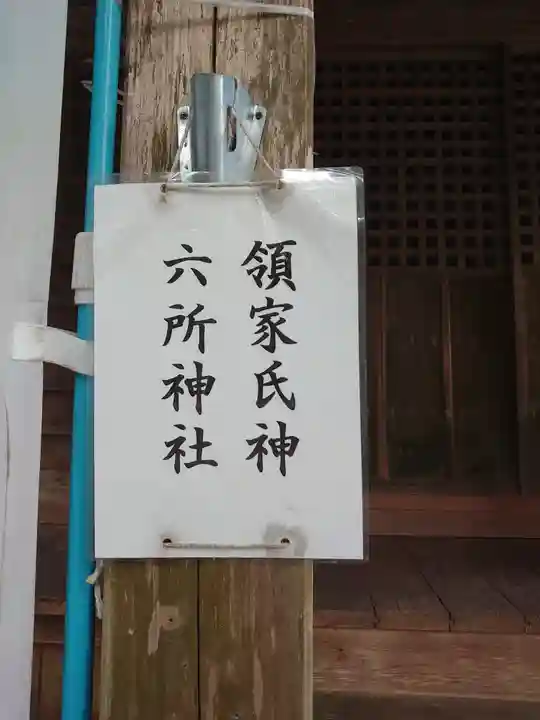 領家氏神
六所神社